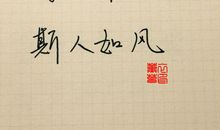 斯人如风